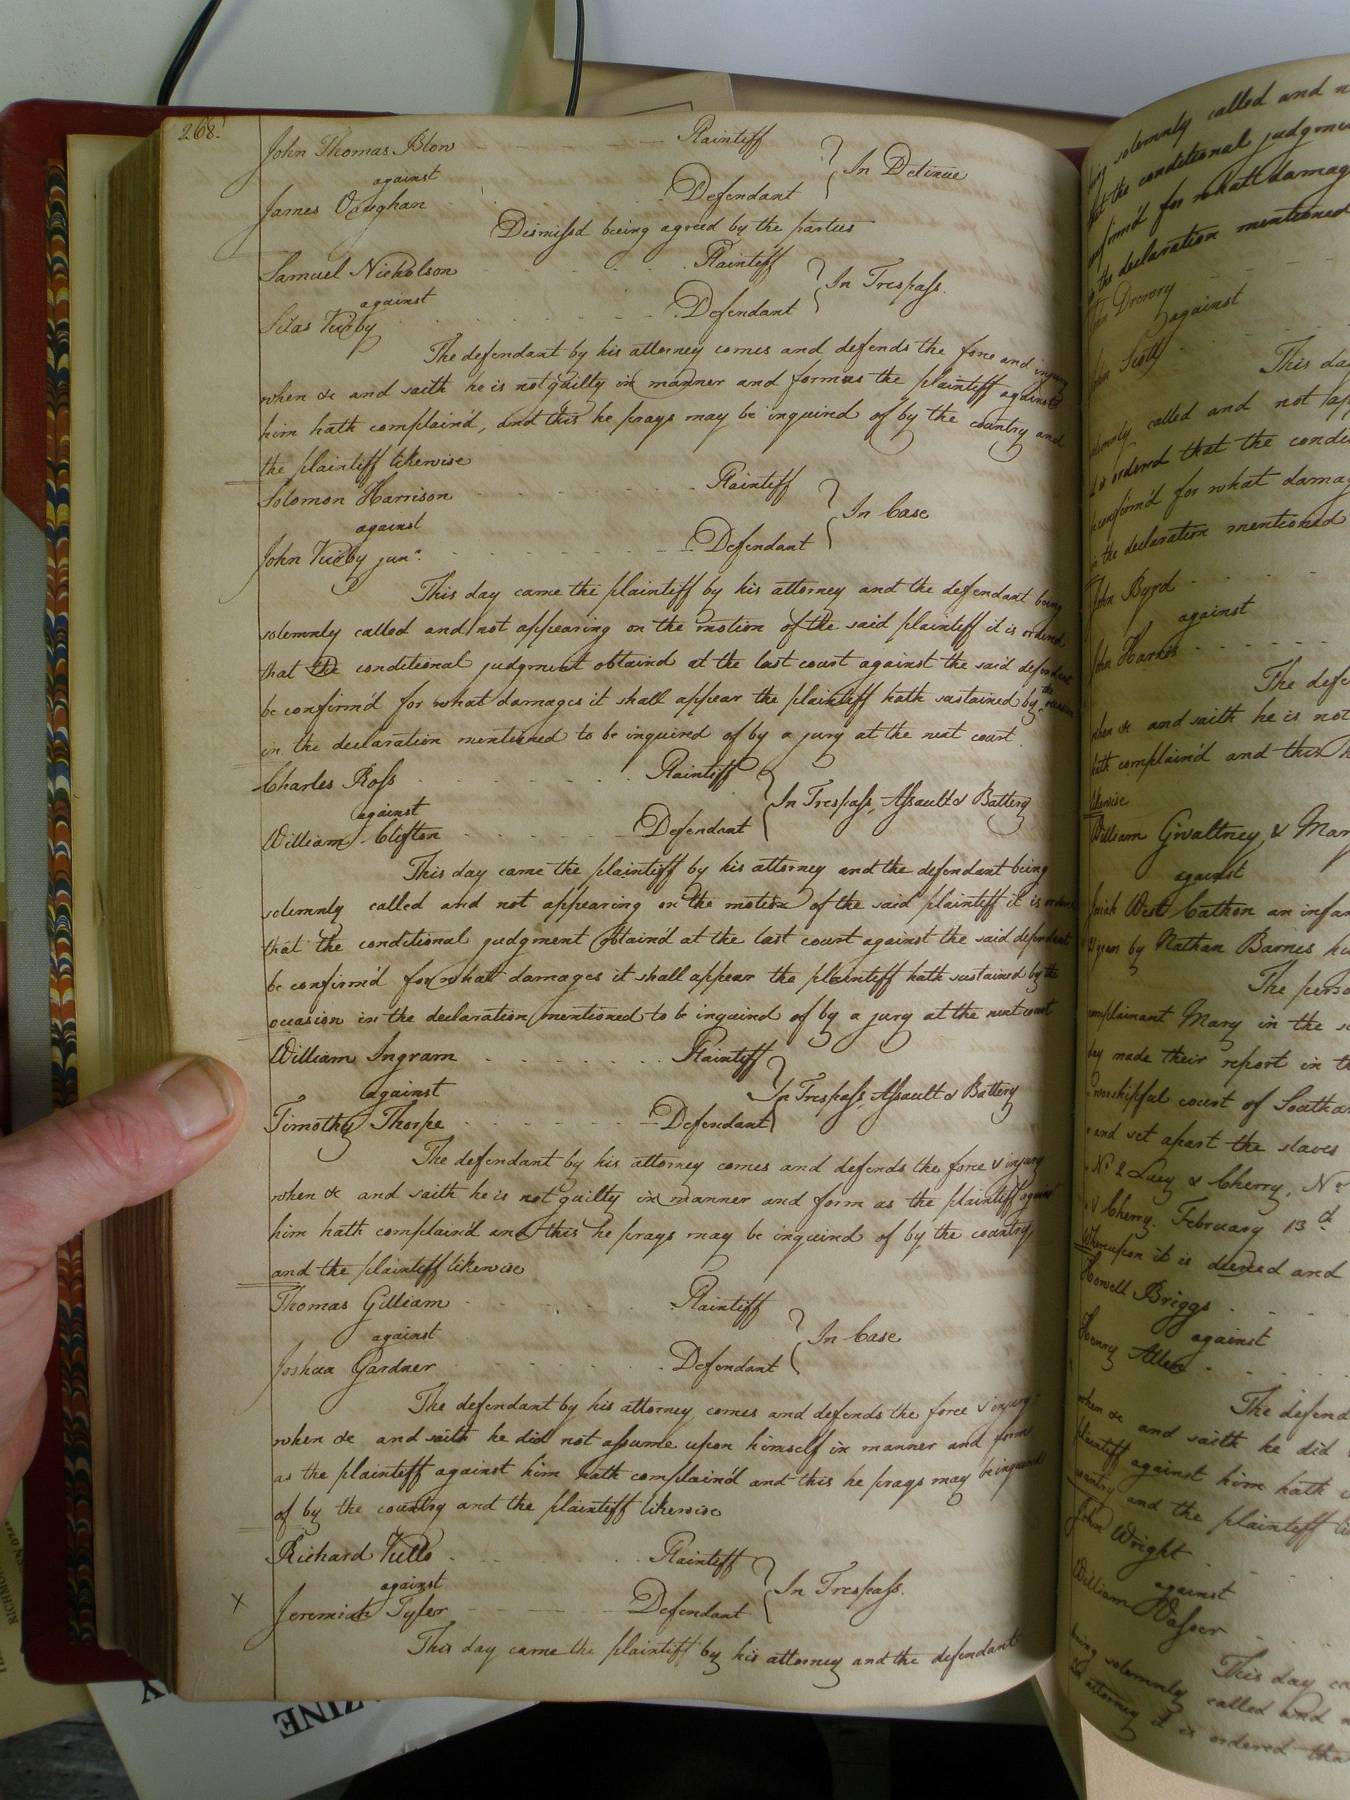 268.
John Thomas Blow Plaintiff
against In Detinue
James Vaughan Defendant
Dismissed being agreed by the parties
Samuel Nicholson Plaintiff
against In Trespass.
Silas Kirby Defendant
The defendant by his attorney comes and defends the force and injury
when &c and saith he is not guilty in manner and form as the plaintiff against
him hath complain'd, and this he prays may be inquired of by the country and
the plaintiff likewise
Solomon Harrison Plaintiff
against In Case
John Kirby junr. Defendant
This day came the plaintiff by his attorney and the defendant being
solemnly called and not appearing on the motion of the said plaintiff it is ordered
that the conditional judgment obtained at the last court against the said defendant
be confirm'd for what damages it shall appear the plaintiff hath sustained by the
in the declaration mentioned to be inquired of by a jury at the next court.
Charles Ross Plaintiff
against In Trespass, Assault & Battery
William Clifton Defendant
This day came the plaintiff by his attorney and the defendant being
solemnly called and not appearing on the motion of the said plaintiff it is ordered
that the conditional judgment obtain'd at the last court against the said defendant
be confirm'd for what damages it shall appear the plaintiff hath sustained by the
occasion in the declaration mentioned to be inquired of by a jury at the next court
William Ingram Plaintiff
against In Trespass, Assault & Battery
Timothy Thorpe Defendant
The defendant by his attorney comes and defends the force & injury
when &c and saith he is not guilty in manner and form as the plaintiff against
him hath complain'd and this he prays may be inquired of by the country
and the plaintiff likewise
Thomas Gilliam Plaintiff
against In Case
Joshua Gardner Defendant
The defendant by his attorney comes and defends the force & injury
when &c and saith he did not assume upon himself in manner and form
as the plaintiff against him hath complain'd and this he prays may be inquired
of by the country and the plaintiff likewise
Richard Kello Plaintiff
against In Trespass.
x Jeremiah Tyler Defendant
This day came the plaintiff by his attorney and the defendant
being solemnly called and
that the conditional judgment
confirm'd for what damages
in the declaration mentioned
John Drewry
against
John Scott
This day
solemnly called and not
is ordered that the
be confirm'd for what
in the declaration mentioned
John Byrd
against
John Harris
The
when &c and saith he is not
hath complain'd and this
likewise
William Gwaltney, &
against
West Cathon an
years by Nathan Barnes
The
complainant Mary in the
they made their report in
worshipful court of
and set apart the slaves
No. 2 Lucy & Cherry, No
& Cherry. February 13d
Whereupon it is decreed and
Howell Briggs
against
Henry Allen
The
when &c and saith he did
plaintiff against him hath
country and the plaintiff
John Wright
against
William Vasser
This day
being solemnly called and
attorney it is ordered
ZINE